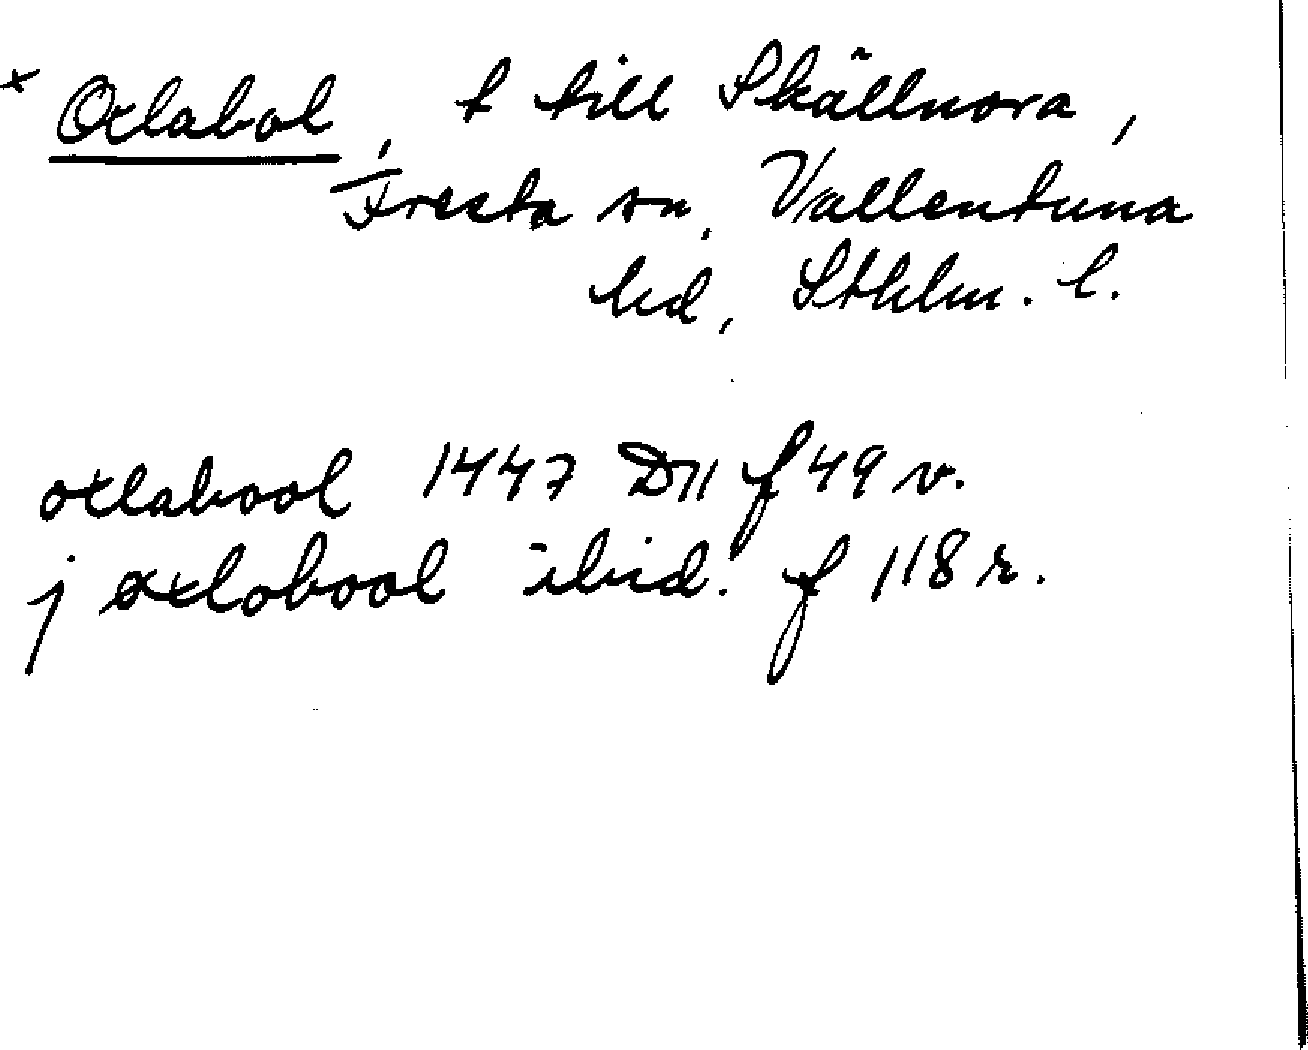 × Oxlabol, t till Skällnora,
Fresta sn, Vallentuna
hd, Sthlm. l.
oxlabool 1447 D11 f 49 v.
j oxlobool ibid. f 118 r.